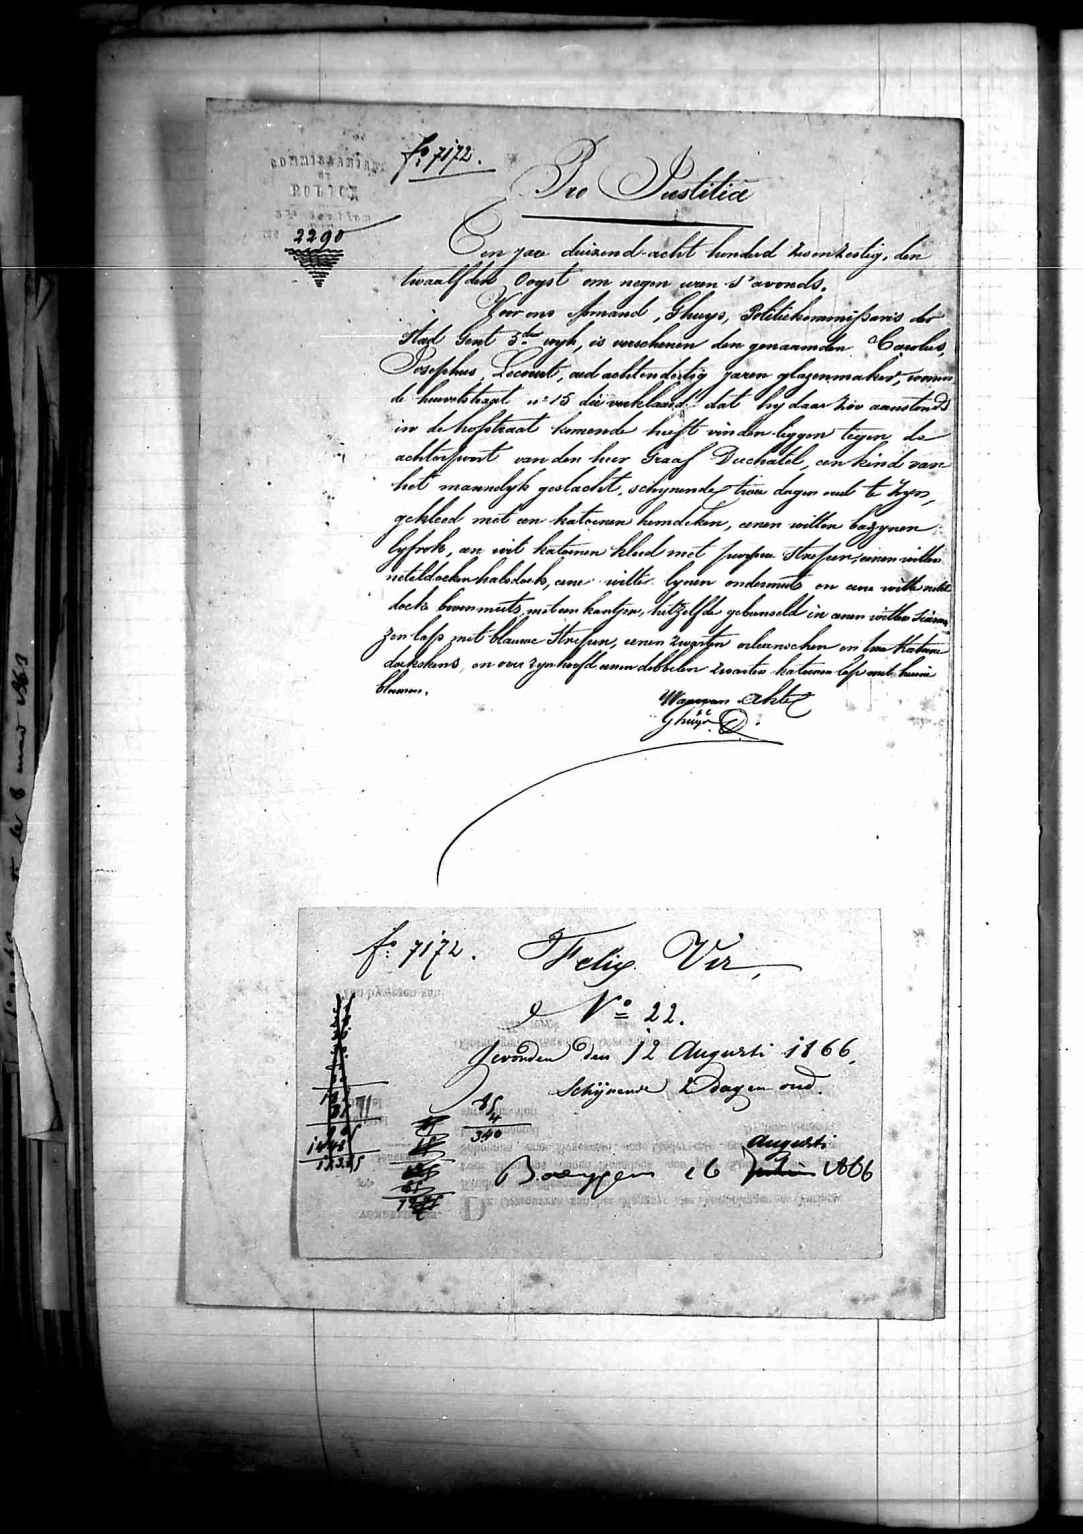 COMMISSARIAT
DE
POLICE
f° 7172.
2290
Pro Justitia
Een jaer duizend acht honderd zesenzestig, den
twaalfden Oogst om negen uren s'avonds.
Voor ons Armand, Ghuys, Politiekommissaris der
Stad Gent 5de wyk, is verschenen den genaamden Carolus,
Josephus, Lecourt, oud achtendertig jaren glazenmaker, woonen
de heuvelstraat n° 15 die verklaard dat hy daar zoo aanstonds
in de hofstraat komende heeft vinden leggen tegen de
achterpoort van den heer Graaf Duchatel, een kind van
het mannelyk geslacht, schynende twee dagen oud te zyn,
gekleed met een katoenen hemdeken, eenen witten bazynen
lyfrok, een wit katoenen kleed met purpere strepen, eenen witten
neteldoeken halsdoek, eene witte lynen ondermuts en eene witte netel
doeke bovenmuts, met een kantjen, hetzelfde gebunseld in eenen witten
zen lap met blauwe strepen, eenen zwarten en twee katoene
doekskens, en over zyn hoofd eenen dobbelen zwarten katoenen lap met
blomen.
Waarvan akte
Ghuys
f° 7172. Felix Vir,
N° 22.
Gevonden den 12 Augusti 1866,
Schijnende 2 dagen oud.
85
4
340
Augusti
16 1866